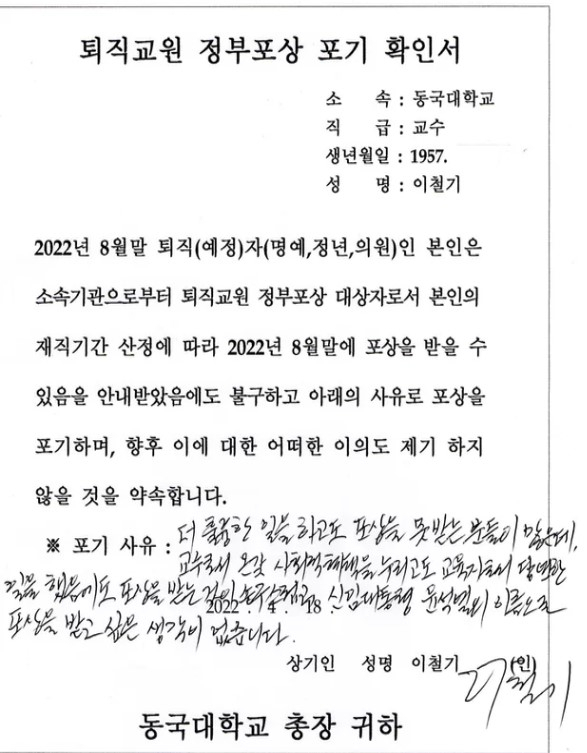 퇴직교원 정부포상 포기 확인서
소 속 : 동국대학교
직 급 : 교수
생년월일 : 1957.
성 명 : 이철기
2022년 8월말 퇴직(예정)자(명예,정년,의원)인 본인은
소속기관으로부터 퇴직교원 정부포상 대상자로서 본인의
재직기간 산정에 따라 2022년 8월말에 포상을 받을 수
있음을 안내받았음에도 불구하고 아래의 사유로 포상을
포기하며, 향후 이에 대한 어떠한 이의도 제기 하지
않을 것을 약속합니다.
※ 포기 사유 : 더 훌륭한 일을 하고도 포상을 못받는 분들이 많은데,
교수로서 온갖 사회적 혜택을 누리고도 교육자로서 당연한
일을 했음에도 포상을 받는 것이 송구스럽고, 신임대통령 윤석열의 이름으로
2022. 4. 18.
포상을 받고 싶은 생각이 없습니다.
상기인 성명 이철기 (인)
이철기
동국대학교 총장 귀하